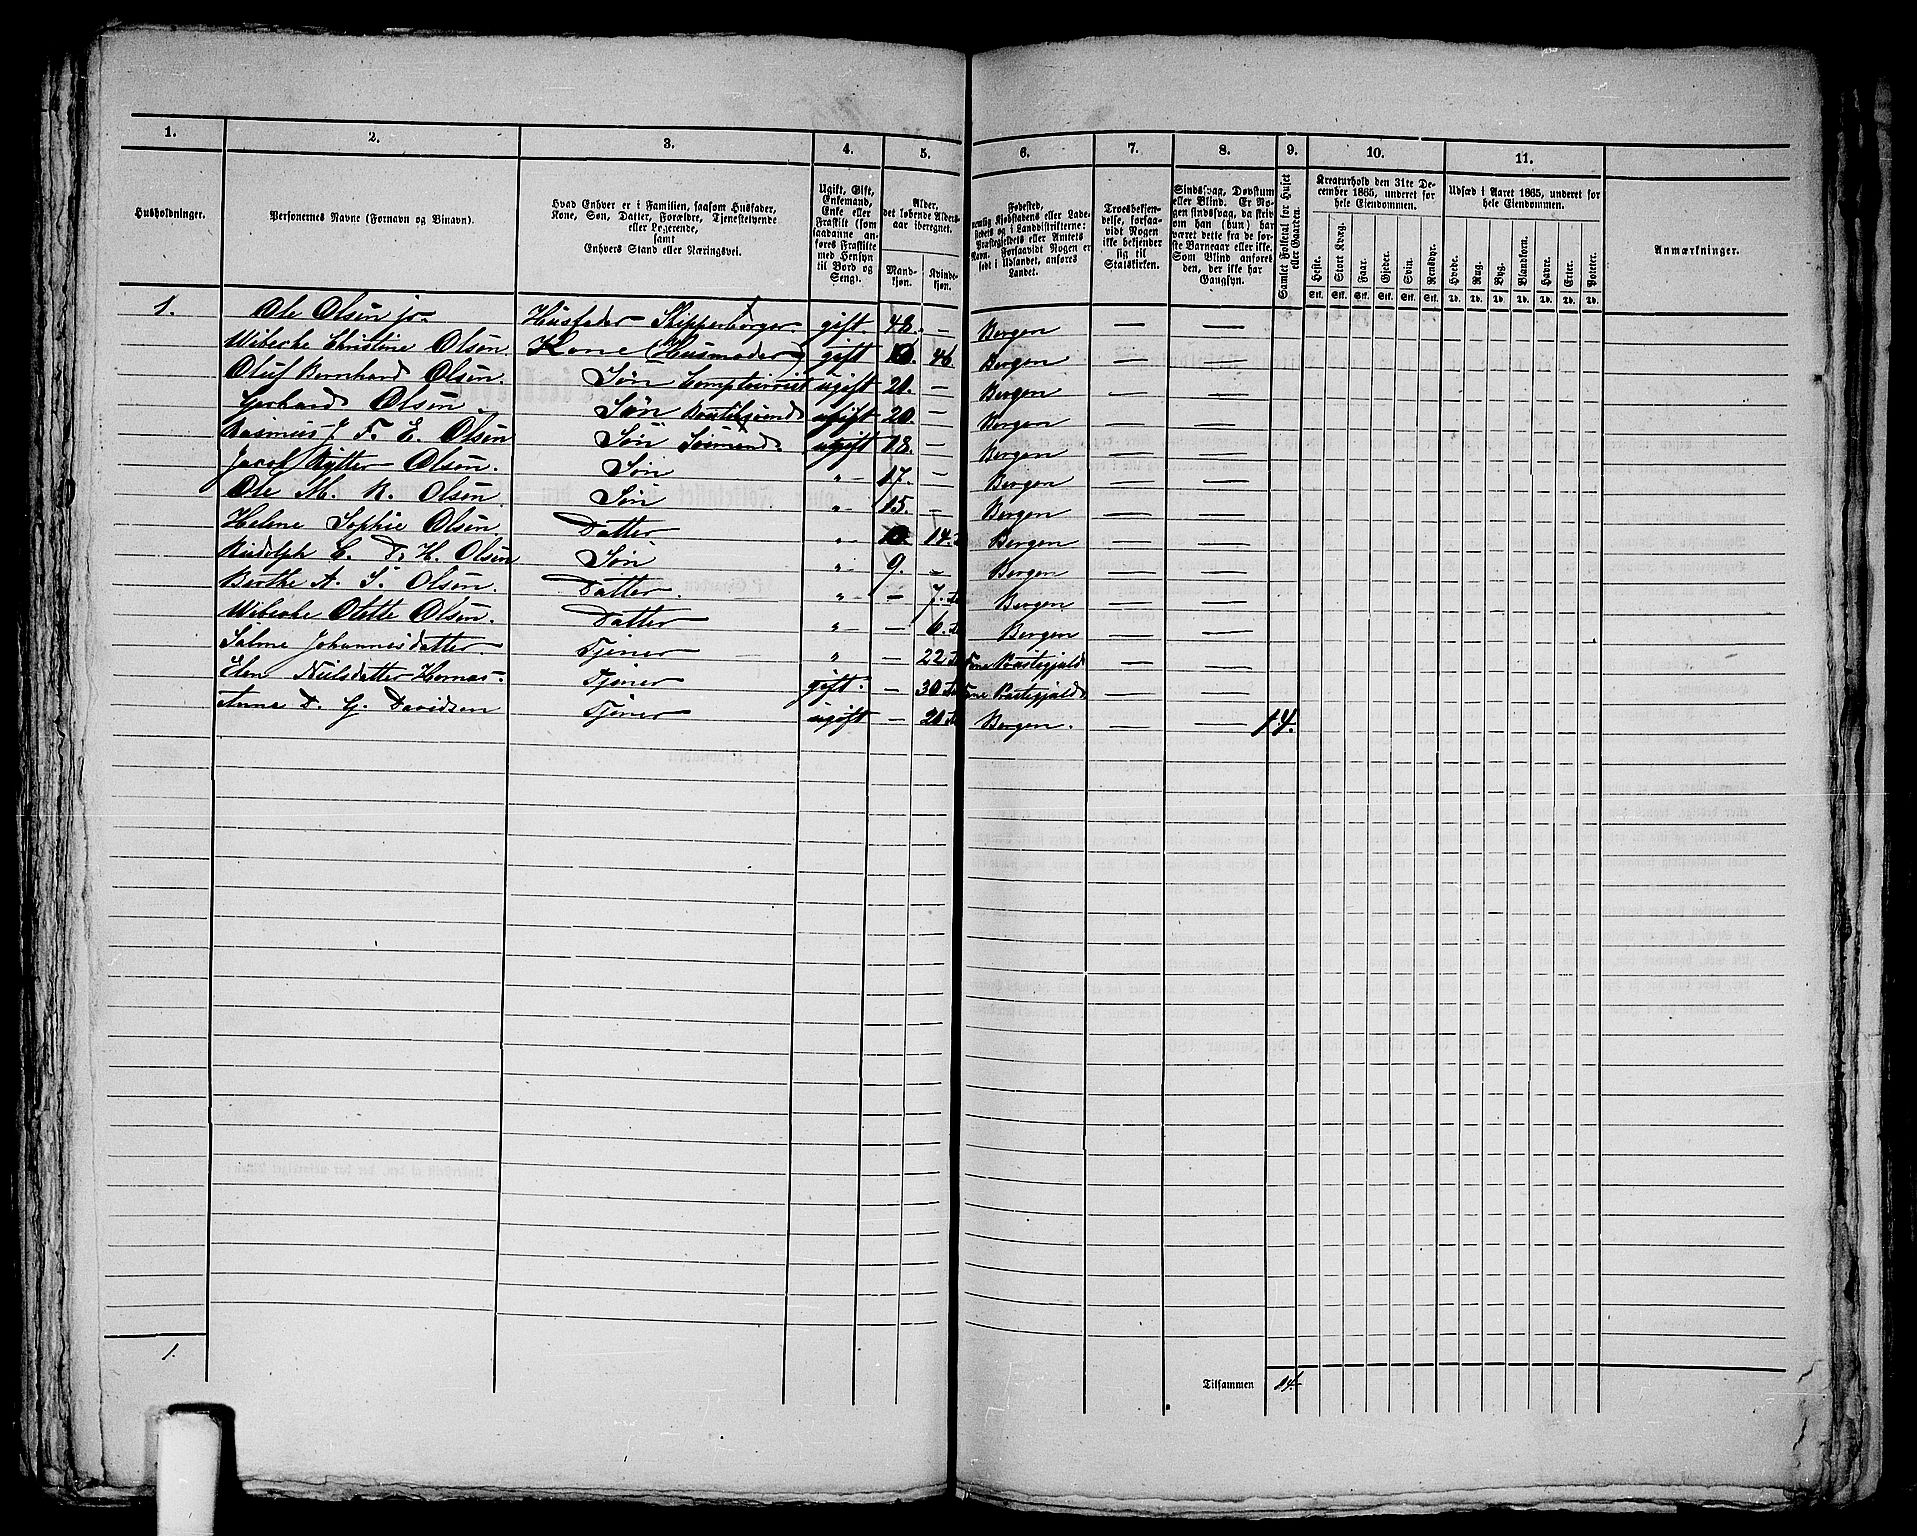 1. 2. 3. 4. 5. 6. 7. 8. 9. 10. 11.
Husholdninger.
Personernes Navne (Fornavn og Binavn).
Hvad Enhver er i Familien, saasom Husfader,
Kone, Søn, Datter, Forældre, Tjenstetyende
eller Logerende,
samt
Enhvers Stand eller Næringsvei.
Ugift, Gift,
Enkemand,
Enke eller
Fraskilt (som
saadanne an-
føres Fraskilte
med Hensyn
til Bord og
Seng).
Alder,
det løbende Alders-
aar iberegnet.
Mand-
kjøn.
Kvinde-
kjøn.
Fødested,
nemlig Kjøbstadens eller Lade-
stedets og i Landdistrikterne:
Præstegjeldets eller Amtets
Navn. Forsaavidt Nogen er
født i Udlandet, anføres
Landet.
Troesbekjen-
delse, forsaa-
vidt Nogen
ikke bekjender
sig til
Statskirken.
Sindssvag, Døvstum
eller Blind. Er No-
gen sindssvag, da skriv
om han (hun) har
været dette fra de før-
ste Barneaar eller ikke.
Som Blind anføres
den, der ikke har
Gangsyn.
Samlet Folketal for Huset
eller Gaarden.
Kreaturhold den 31te De-
cember 1865, underet for
hele Eiendommen.
Heste. Stort Kvæg. Faar. Gjeder. Svin. Rensdyr.
Stk. Stk. Stk. Stk. Stk. Stk.
Udsæd i Aaret 1865, underet for
hele Eiendommen.
Hvede. Rug. Byg. Blandkorn. Havre. Erter. Poteter.
Td. Td. Td. Td. Td. Td. Td.
Anmærkninger.
1. Ole Olsen jr. Husfader Skipperborger gift 48. — Bergen — —
Wibecke Christine Olsen. Kone (Husmoder) gift 46. Bergen — —
Oluf Bernhard Olsen. Søn Comptoirist ugift 20. — Bergen — —
Gerhard Olsen. Søn ugift 20. — Bergen — —
Rasmus J. F. E. Olsen Søn Sømand. ugift 18. — Bergen — —
Jacob Rytter Olsen. Søn „ 17. — Bergen — —
Ole M. R. Olsen Søn „ 15. — Bergen — —
Helene Sophie Olsen Datter „ 14. Bergen — —
Rudolph C. D. H. Olsen Søn „ 9. — Bergen — —
Berthe A. S. Olsen. Datter. „ — 7. Bergen — —
Wibecke Olette Olsen. Datter „ — 6. Bergen — —
Salme Johannesdatter Tjener „ — 22 Præstegjeld — —
Elen Nielsdatter Hornas Tjener gift. — 30 Præstegjeld — —
Anna D. G. Davidsen Tjener ugift — 20 Bergen. — — 14.
1.
Tilsammen 14